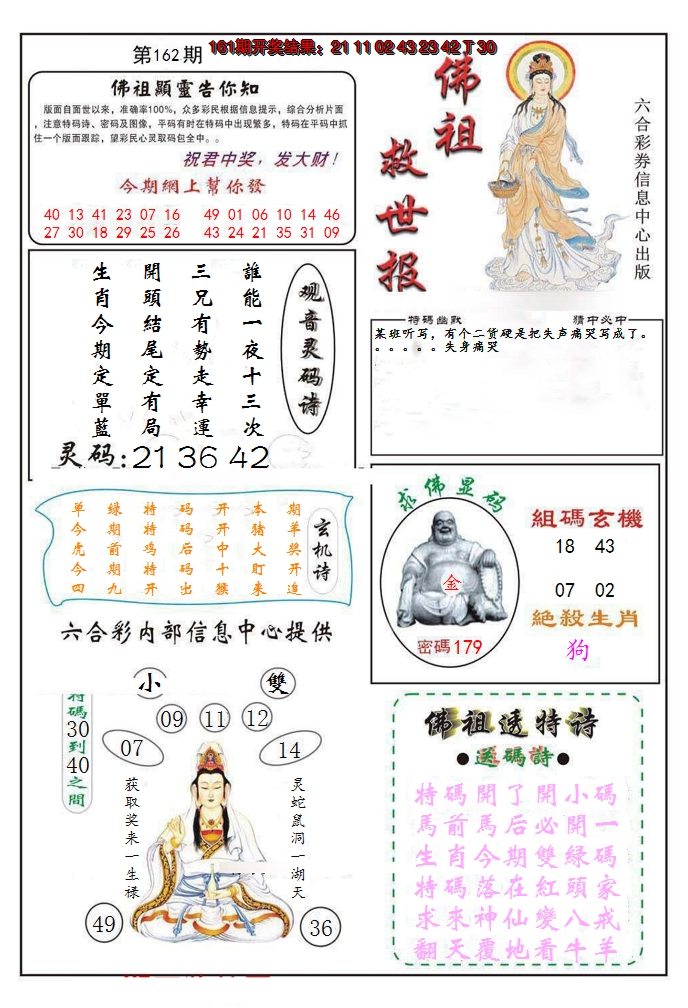 第162期
161期开奖结果：21 11 02 43 23 42 T 30
佛祖顯靈告你知
版面自面世以来，准确率100%，众多彩民根据信息提示，综合分析片面
，注意特码诗、密码及图像，平码有时在特码中出现繁多，特码在平码中抓
住一个版面跟踪，望彩民心灵取码包全中。。
祝君中奖，发大财！
今期網上幫你發
40 13 41 23 07 16 49 01 06 10 14 46
27 30 18 29 25 26 43 24 21 35 31 09
佛祖
救世报
六合彩券信息中心出版
观音灵码诗
誰能一夜十三次
三兄有勢走幸運
開頭結尾定有局
生肖今期定單藍
灵码:21 36 42
特碼幽默
猜中必中
某班听写，有个二货硬是把失声痛哭写成了。
。。。。。失身痛哭
单绿特码开本期
今期特码开猪羊
虎前鸡后中大奖
今期特码十盯开
四九开出猴来追
玄机诗
六合彩内部信息中心提供
求佛显码
金
密碼179
組碼玄機
18 43
07 02
絶殺生肖
狗
小
雙
特碼30到40之間
09
11
12
07
14
获取奖来一生禄
灵蛇鼠洞一湖天
49
36
佛祖透特诗
●送碼詩●
特碼開了開小碼
馬前馬后必開一
生肖今期雙緑碼
特碼落在紅頭家
求來神仙變八戒
翻天覆地看牛羊